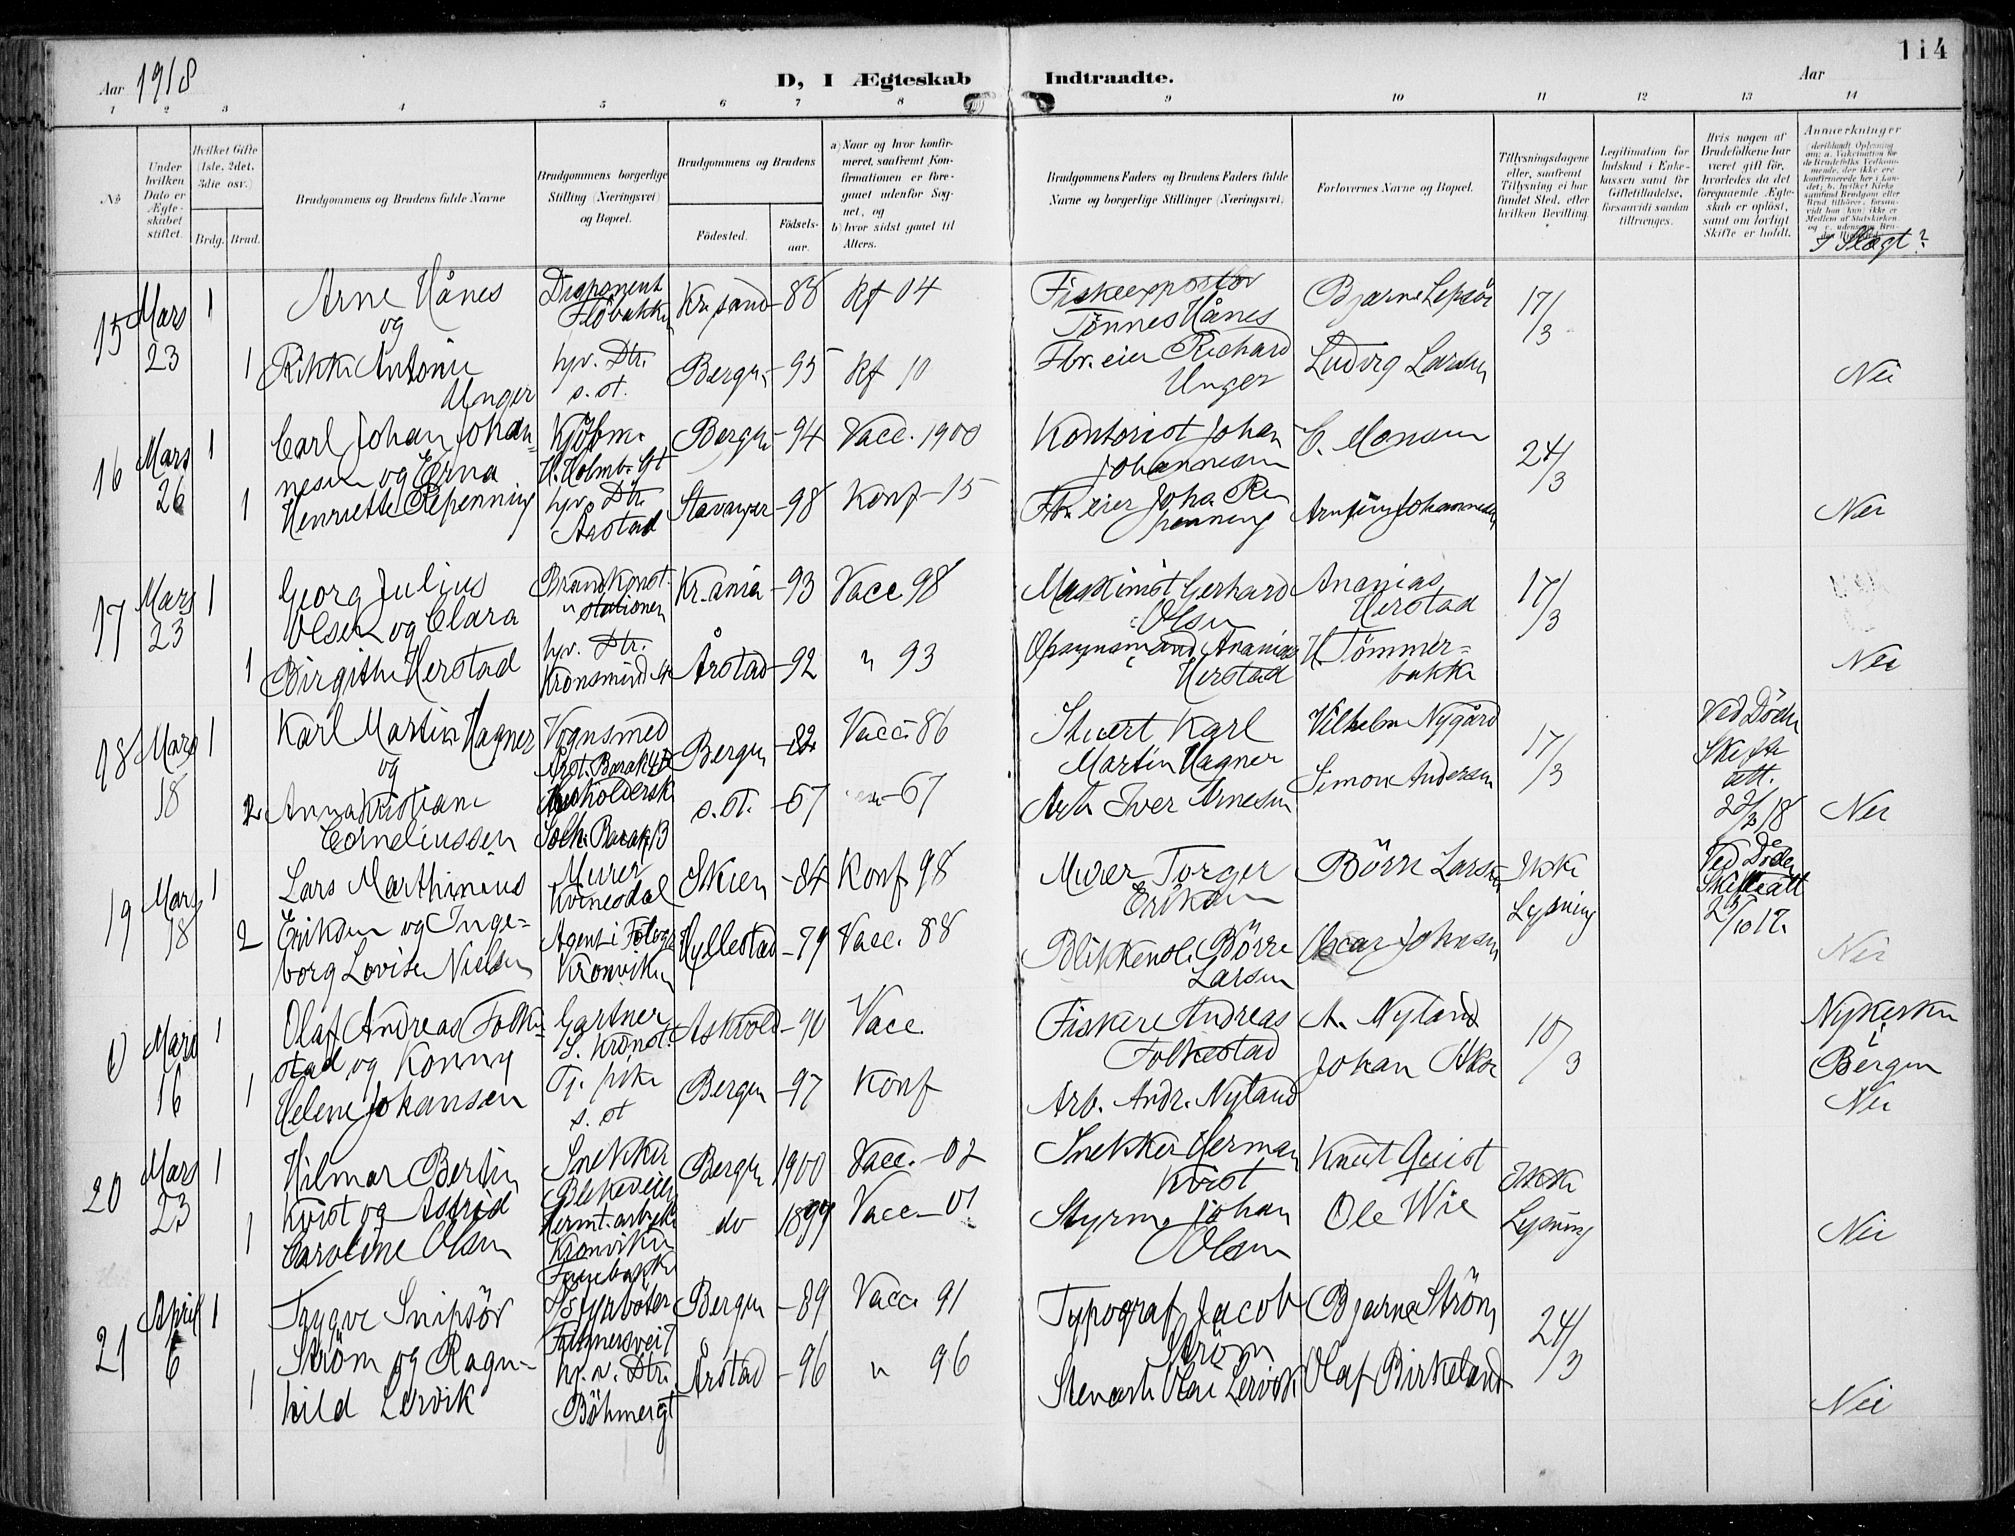 114
Aar 1918
D, I Ægteskab Indtraadte.
Aar
1 2 3 4 5 6 7 8 9 10 11 12 13 14
No
Under hvilken Dato er Ægteskabet stiftet.
Hvilket Gifte (1ste, 2det, 3die osv.)
Brdg. Brud.
Brudgommens og Brudens fulde Navne
Brudgommens borgerlige Stilling (Næringsvei) og Bopæl.
Brudgommens og Brudens
Födested. Födselsaar.
a) Naar og hvor konfirmeret, saafremt Konfirmationen er foregaaet udenfor Sognet, og
b) hvor sidst gaaet til Alters.
Brudgommens Faders og Brudens Faders fulde Navne og borgerlige Stillinger (Næringsvei)
Forlovernes Navne og Bopæl.
Tillysningsdagene eller, saafremt Tillysning ei har fundet Sted, efter hvilken Bevilling.
Legitimation for Indskud i Enkekassen samt for Giftetilladelse, forsaavidt saadan tiltrænges.
Hvis nogen af Brudefolkene har været gift för, hvorledes da det foregaaende Ægteskab er oplöst, samt om lovligt Skifte er holdt.
Anmærkninger
I Slægt?
15 Mars 1 Arne Hånes Disponent Kr.sand -88 Kf 04 Fiskeexportör Bjarne Lepsöe 17/3
og Flöbakken Tönnes Hånes
23 1 Rikke Antonie hjv. Dtr. Bergen -95 Kf 10 Fbr. eier Richard Ludvig Larsen
Unger s. st. Unger Nei
16 Mars 1 Carl Johan Johan- Kjöbm. Bergen -94 Vacc. 1900 Kontorist Johan C. Monsen 24/3
nesen og Erna H. Holmb. Gt Johannesen
26 1 Henriette Repenning hjv. Dtr. Stavanger -98 Konf -15 Fbr. eier Joha Re
Årstad penning Nei
17 Mars 1 Georg Julius Brandkonst. Kr.ania -93 Vacc 98 Maskinist Gerhard Ananias 17/3
23 Olsen og Clara " stationen Olsen Herstad
1 Birgithe Herstad hjv. Dtr. Årstad -92 " 93 Opsynsmand Ananias H. Tömmer-
Herstad bakke Nei
18 Mars 1 Karl Martin Hagner Vognsmed Bergen -82 Vacc. 86 Stuert Karl Vilhelm Nygård 17/3 Ved Döden
og Martin Hagner Skifte
18 2 Anna Kristiane s. st. -67 -67 Arb. Iver Arnesen Simon Andersen att.
Corneliussen Solh. Barak B 22/3 18 Nei
19 Mars 1 Lars Marthinius Murer Skien -84 Konf 98 Murer Torger Börre Larsen Ikke Ved Döden
Kvinesdal Eriksen Lysning Skifteatt
18 2 Eriksen og Inge- Agent i Hyllestad -79 Vacc. 88 Blikkensl. Börre Oscar Johnsen 2/10 17.
borg Lovise Nielsen Kronviken Larsen Nei
Mars 1 Olaf Andreas Folke- Gartner Askvold -90 Vacc. Fiskere Andreas A. Nyland 10/3 Nykirken
stad og Konny Folkestad Bergen
16 1 Helene Johansen Tj. pike Bergen -97 Konf Arb. Andr. Nyland Nei
s. st
20 Mars 1 Hilmar Bertin Snekker Bergen 1900 Vacc. -02 Snekker Herman Knut Quist Ikke
Kvist Lysning
23 Kvist og Astrid do 1899 Vacc -01 Styrm. Johan Ole Wie
1 Caroline Olsen Kronviken Olsen Nei
21 April 1 Trygve Snipsör Bergen -89 Vacc 91 Typograf Jacob Bjarne Ström 24/3
Ström
6 Ström og Ragn- hjv. Dtr. Årstad -96 " 96 Olaf Birkeland
1 hild Lervik Böhmergt Nei